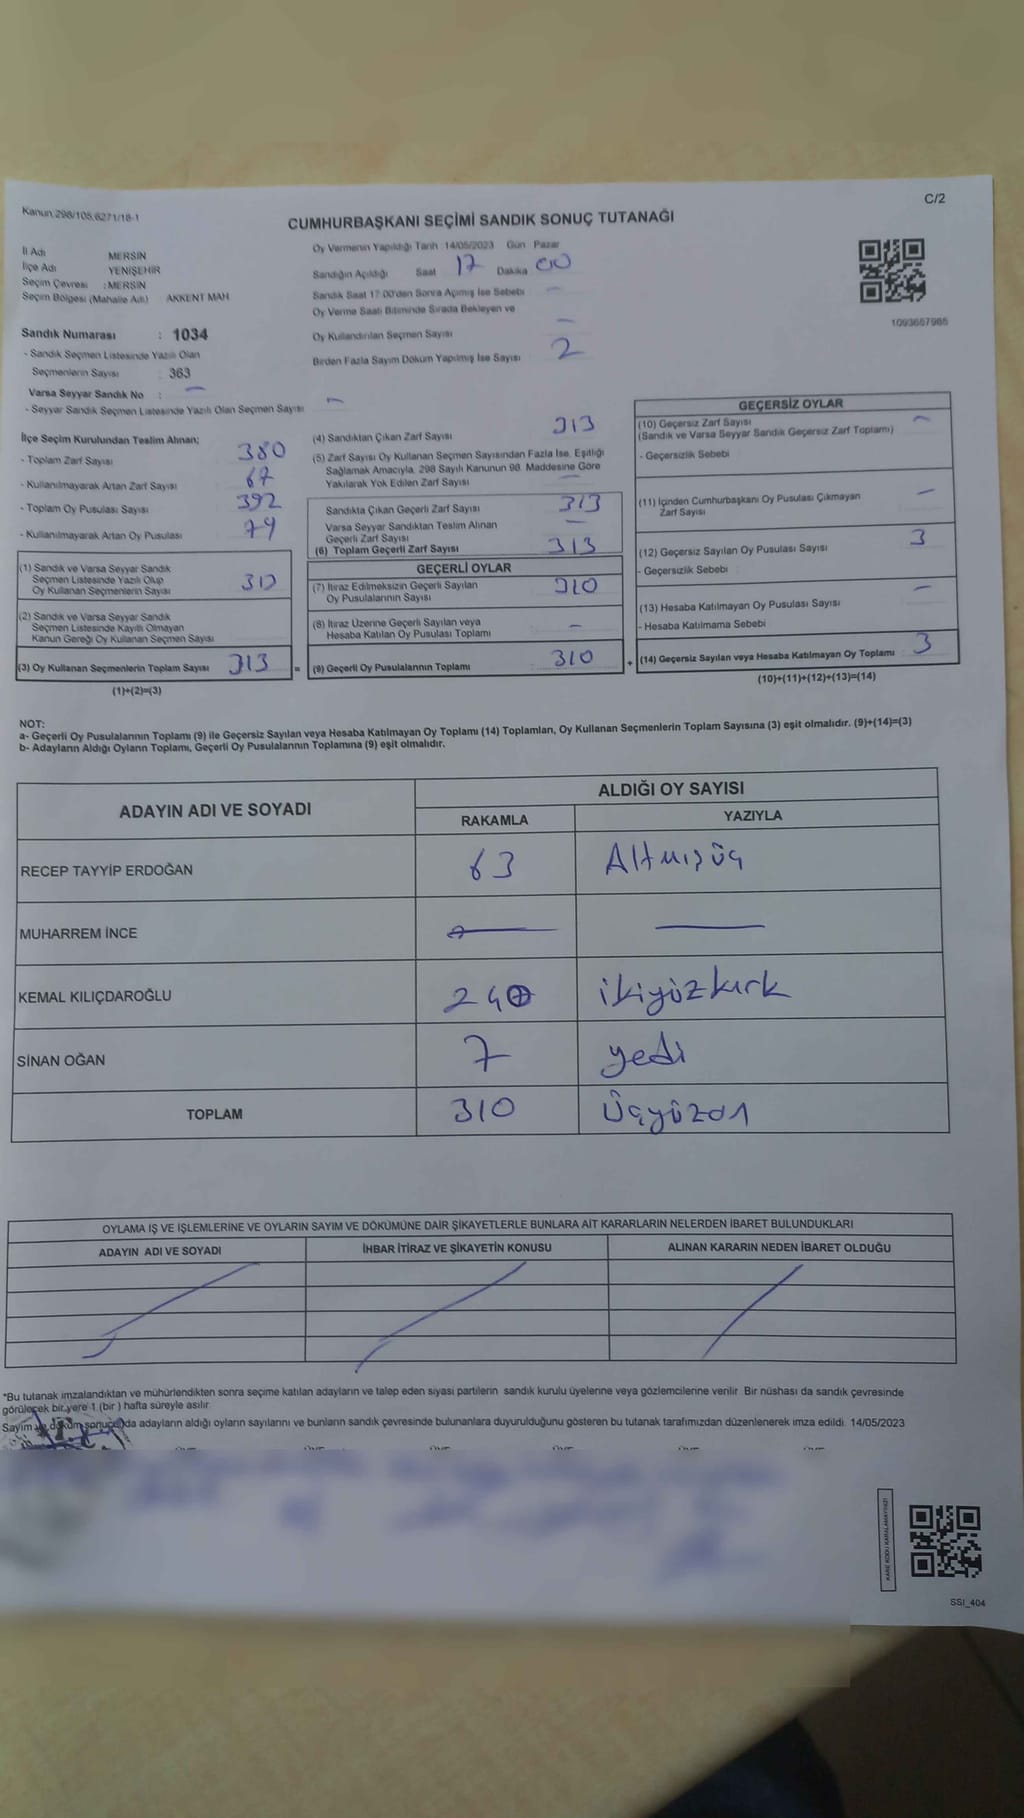 Kanun.298/105,6271/18-1
C/2
CUMHURBAŞKANI SEÇİMİ SANDIK SONUÇ TUTANAĞI
İl Adı MERSİN
İlçe Adı YENİŞEHİR
Seçim Çevresi : MERSİN
Seçim Bölgesi (Mahalle Adı) AKKENT MAH
Oy Vermenin Yapıldığı Tarih 14/05/2023 Gün Pazar
Sandığın Açıldığı Saat 17 Dakika 00
Sandık Saat 17:00'den Sonra Açımış İse Sebebi –
Oy Verme Saati Bitiminde Sırada Bekleyen ve
Oy Kullandırılan Seçmen Sayısı –
Birden Fazla Sayım Döküm Yapılmış İse Sayısı 2
1093657985
Sandık Numarası : 1034
- Sandık Seçmen Listesinde Yazılı Olan
Seçmenlerin Sayısı : 363
Varsa Seyyar Sandık No : –
- Seyyar Sandık Seçmen Listesinde Yazılı Olan Seçmen Sayısı –
İlçe Seçim Kurulundan Teslim Alınan;
- Toplam Zarf Sayısı 380
- Kullanılmayarak Artan Zarf Sayısı 67
- Toplam Oy Pusulası Sayısı 392
- Kullanılmayarak Artan Oy Pusulası 79
(1) Sandık ve Varsa Seyyar Sandık
Seçmen Listesinde Yazılı Olup
Oy Kullanan Seçmenlerin Sayısı 313
(2) Sandık ve Varsa Seyyar Sandık
Seçmen Listesinde Kayıtlı Olmayan
Kanun Gereği Oy Kullanan Seçmen Sayısı
(3) Oy Kullanan Seçmenlerin Toplam Sayısı 313 =
(1)+(2)=(3)
(4) Sandıktan Çıkan Zarf Sayısı 313
(5) Zarf Sayısı Oy Kullanan Seçmen Sayısından Fazla İse, Eşitliği
Sağlamak Amacıyla, 298 Sayılı Kanunun 98. Maddesine Göre
Yakılarak Yok Edilen Zarf Sayısı –
Sandıkta Çıkan Geçerli Zarf Sayısı 313
Varsa Seyyar Sandıktan Teslim Alınan
Geçerli Zarf Sayısı –
(6) Toplam Geçerli Zarf Sayısı 313
GEÇERLİ OYLAR
(7) İtiraz Edilmeksizin Geçerli Sayılan
Oy Pusulalarının Sayısı 310
(8) İtiraz Üzerine Geçerli Sayılan veya
Hesaba Katılan Oy Pusulası Toplamı –
(9) Geçerli Oy Pusulalarının Toplamı 310 +
GEÇERSİZ OYLAR
(10) Geçersiz Zarf Sayısı –
(Sandık ve Varsa Seyyar Sandık Geçersiz Zarf Toplamı)
- Geçersizlik Sebebi
(11) İçinden Cumhurbaşkanı Oy Pusulası Çıkmayan –
Zarf Sayısı
(12) Geçersiz Sayılan Oy Pusulası Sayısı 3
- Geçersizlik Sebebi
(13) Hesaba Katılmayan Oy Pusulası Sayısı –
- Hesaba Katılmama Sebebi
(14) Geçersiz Sayılan veya Hesaba Katılmayan Oy Toplamı 3
(10)+(11)+(12)+(13)=(14)
NOT:
a- Geçerli Oy Pusulalarının Toplamı (9) ile Geçersiz Sayılan veya Hesaba Katılmayan Oy Toplamı (14) Toplamları, Oy Kullanan Seçmenlerin Toplam Sayısına (3) eşit olmalıdır. (9)+(14)=(3)
b- Adayların Aldığı Oyların Toplamı, Geçerli Oy Pusulalarının Toplamına (9) eşit olmalıdır.
ADAYIN ADI VE SOYADI ALDIĞI OY SAYISI
RAKAMLA YAZIYLA
RECEP TAYYİP ERDOĞAN 63 Altmışüç
MUHARREM İNCE — —
KEMAL KILIÇDAROĞLU 240 ikiyüzkırk
SİNAN OĞAN 7 yedi
TOPLAM 310 Üçyüzon
OYLAMA İŞ VE İŞLEMLERİNE VE OYLARIN SAYIM VE DÖKÜMÜNE DAİR ŞİKAYETLERLE BUNLARA AİT KARARLARIN NELERDEN İBARET BULUNDUKLARI
ADAYIN ADI VE SOYADI İHBAR İTİRAZ VE ŞİKAYETİN KONUSU ALINAN KARARIN NEDEN İBARET OLDUĞU
*Bu tutanak imzalandıktan ve mühürlendikten sonra seçime katılan adayların ve talep eden siyasi partilerin sandık kurulu üyelerine veya gözlemcilerine verilir. Bir nüshası da sandık çevresinde
görülecek bir yere 1 (bir ) hafta süreyle asılır.
Sayım ve döküm sonucunda adayların aldığı oyların sayılarını ve bunların sandık çevresinde bulunanlara duyurulduğunu gösteren bu tutanak tarafımızdan düzenlenerek imza edildi. 14/05/2023
KARE KODU KARALAMAYINIZ!
SSI_404